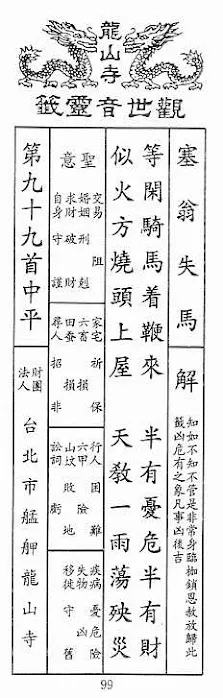 龍山寺
觀世音靈籤
塞翁失馬
解
知如不知不管是非常身臨枷鎖恩赦放歸此
籤凶危有之象凡事凶後吉
等閑騎馬着鞭來　半有憂危半有財
似火方燒頭上屋　天教一雨蕩殃災
聖意
交易 阻
婚姻 刑剋
求財 破財
自身 守謹
家宅 祈保
六畜 損
田蚕 損
尋人 招非
行人 困難
六甲 險
山坟 敗地
訟詞 虧
疾病 憂危險
失物 凶
移徙 守舊
第九十九首中平
財團法人台北市艋舺龍山寺
99